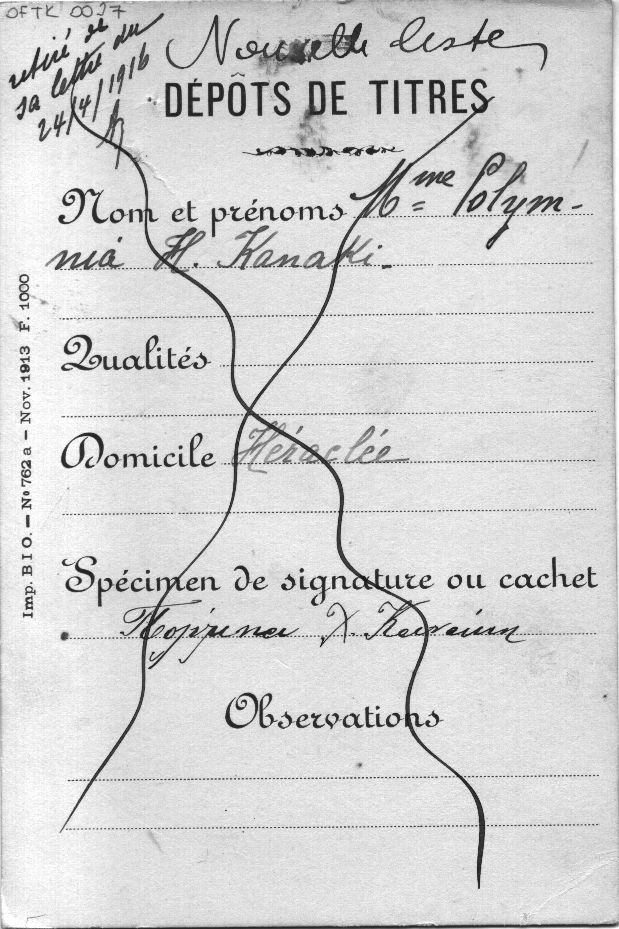 OFTK 0027
retiré de
sa lettre du
24/4/1916
Nouvelle liste
DÉPÔTS DE TITRES
Nom et prénoms Mme Polym-
nia H. Kanaki.
Qualités
Domicile Héraclée
Spécimen de signature ou cachet
Χ.
Observations
Imp. BIO. — No 762a — Nov. 1913 F. 1000